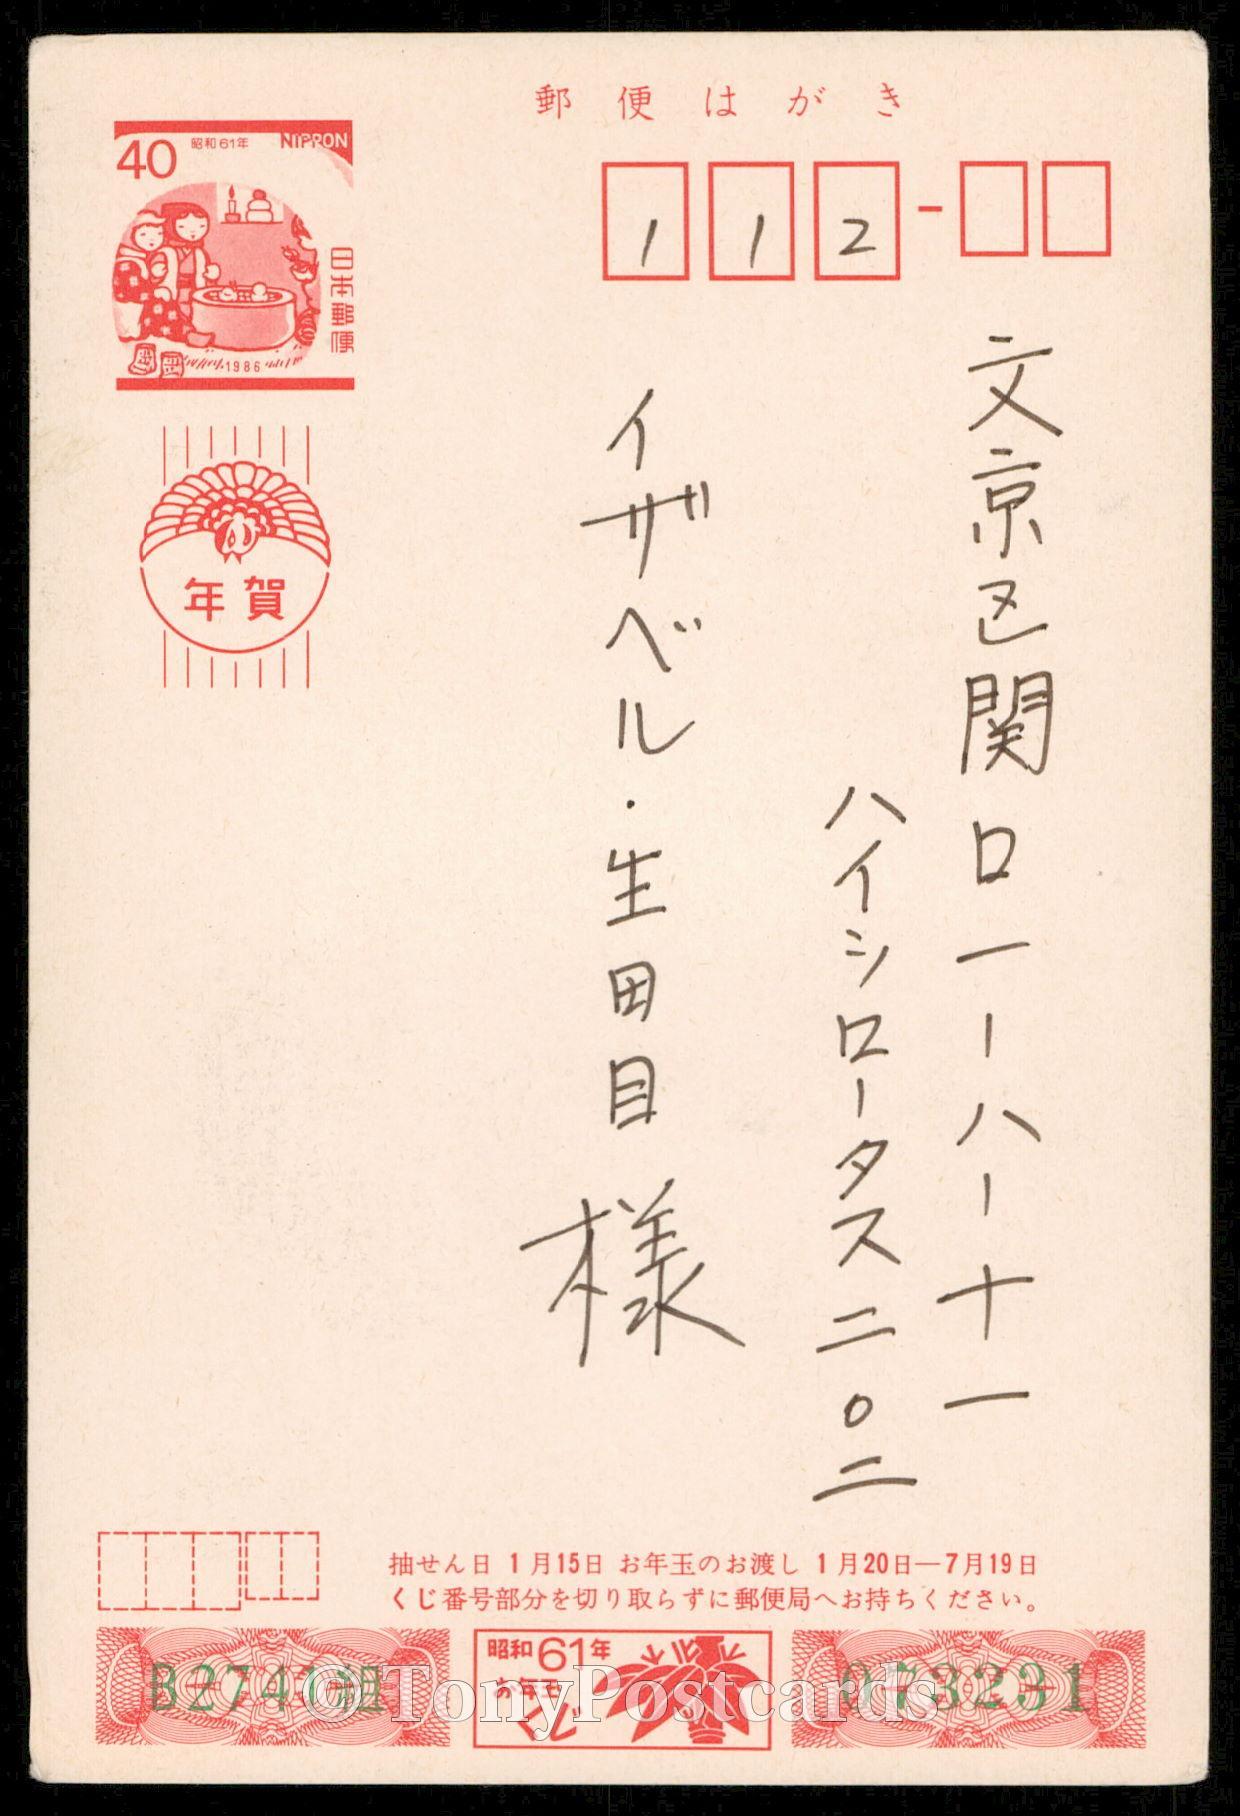 郵便はがき
40
昭和61年
NIPPON
日本郵便
1986
年賀
112
文京区関口一ー八ー十一
ハイシロータス二〇二
イザベル・生田目 様
抽せん日 1月15日 お年玉のお渡し 1月20日―7月19日
くじ番号部分を切り取らずに郵便局へお持ちください。
昭和61年
お年玉
くじ
073231
©TonyPostcards